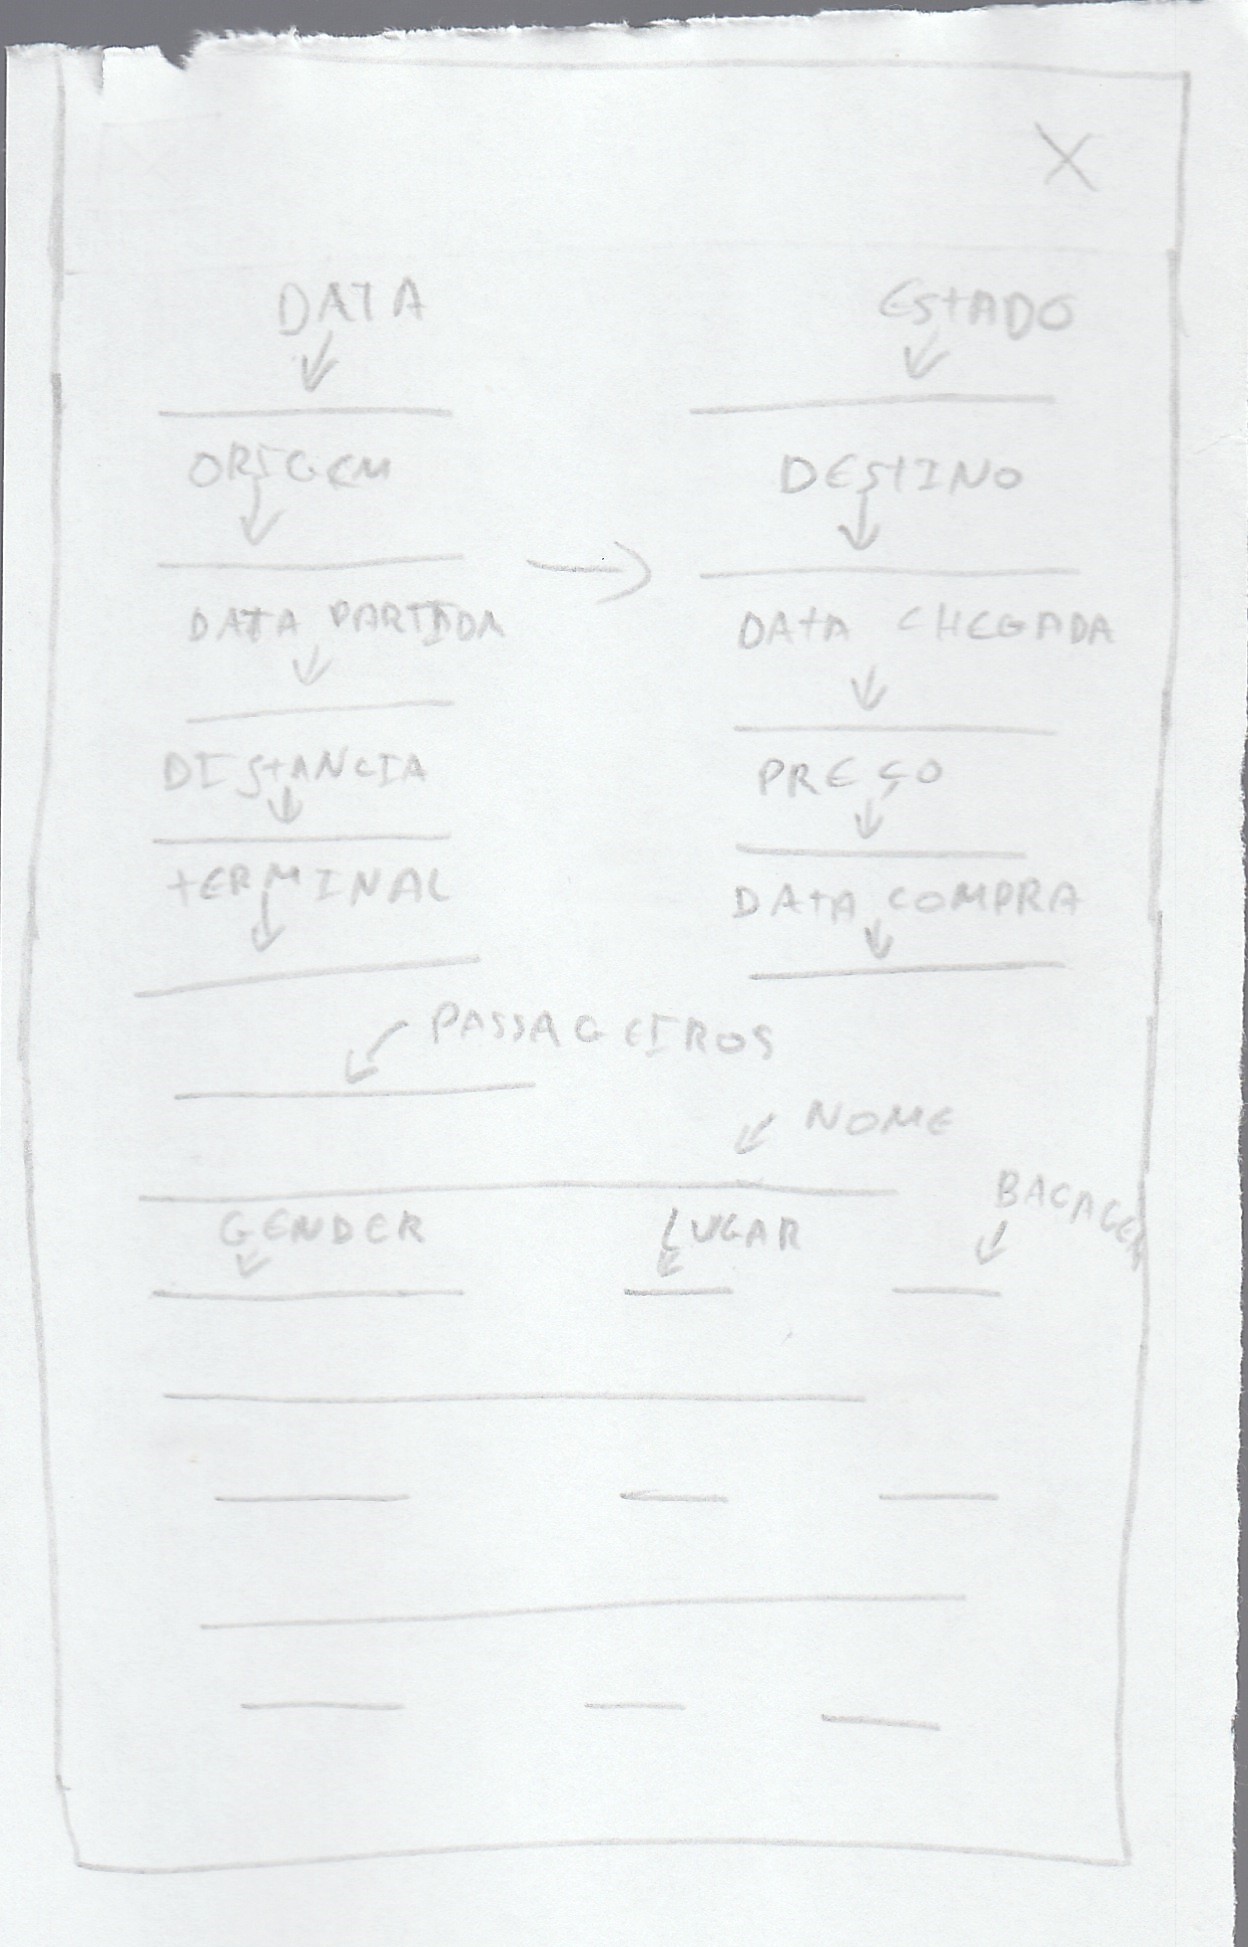 X
DATA ESTADO
ORIGEM DESTINO
DATA PARTIDA DATA CHEGADA
DISTANCIA PREÇO
TERMINAL DATA COMPRA
PASSAGEIROS
NOME
GENDER LUGAR BAGAGEM